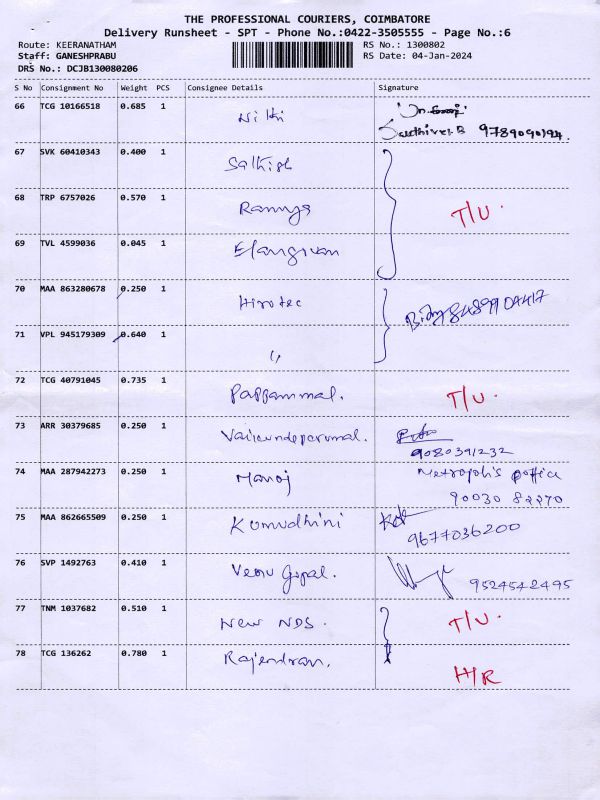 THE PROFESSIONAL COURIERS, COIMBATORE
Delivery Runsheet - SPT - Phone No.:0422-3505555 - Page No.:6
Route: KEERANATHAM
RS No.: 1300802
Staff: GANESHPRABU
RS Date: 04-Jan-2024
DRS No.: DCJB130080206
S No Consignment No Weight PCS Consignee Details Signature
66 TCG 10166518 0.685 1 Nithi
9789090194
67 SVK 60410343 0.400 1 Sathish
68 TRP 6757026 0.570 1 Ramya T/U.
69 TVL 4599036 0.045 1 Elangovan
70 MAA 863280678 0.250 1 Hirotec
8489904417
71 VPL 945179309 0.640 1 "
72 TCG 40791045 0.735 1 Pappammal. T/U.
73 ARR 30379685 0.250 1 Vaikundeperumal.
9080391232
74 MAA 287942273 0.250 1 Manoj Metropolis office
90030 82270
75 MAA 862665509 0.250 1 Kumudhini
9677036200
76 SVP 1492763 0.410 1 Venu Gopal. 9524542495
77 TNM 1037682 0.510 1 New NDS. T/U.
78 TCG 136262 0.780 1 Rajendran. H/R